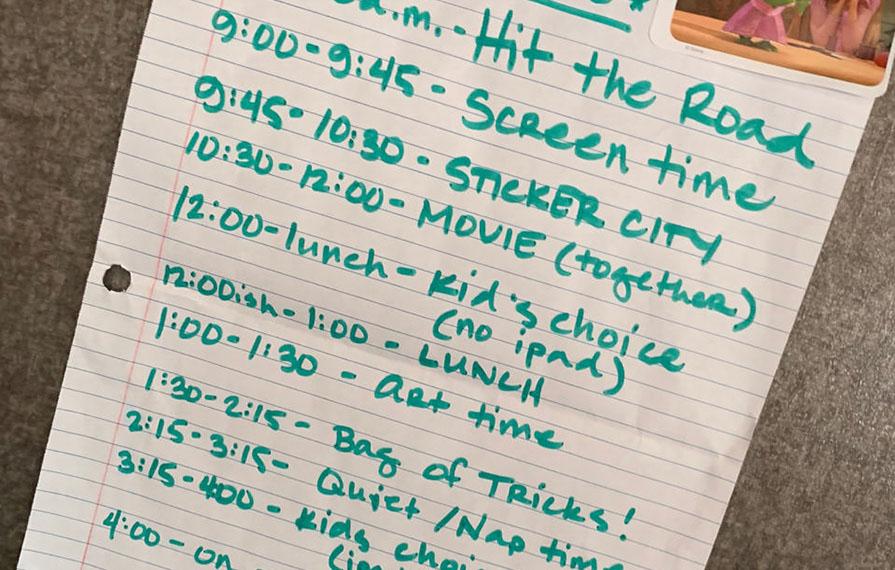 a.m. - Hit the Road
9:00-9:45 - Screen time
9:45-10:30 - STICKER CITY
10:30-12:00 - MOVIE (together)
12:00-lunch - Kid's choice
(no ipad)
12:00ish-1:00 - LUNCH
1:00-1:30 - art time
1:30-2:15 - Bag of TRicks!
2:15-3:15 - Quiet /Nap time
3:15-400 - Kids
4:00 - on